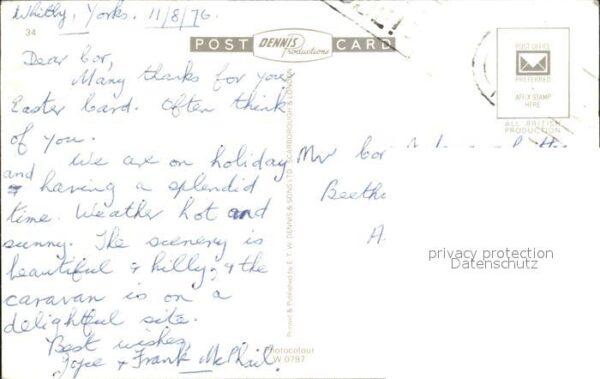 Whitby, Yorks. 11/8/76.
34
POST DENNIS Productions CARD
POST OFFICE
PREFERRED
AFFIX STAMP
HERE
ALL BRITISH
PRODUCTION
Dear Cor,
Many thanks for your
Easter Card. Often think
of you.
We are on holiday
and having a splendid
time. Weather hot and
sunny. The scenery is
beautiful & hilly, & the
caravan is on a
delightful site.
Best wishes,
Joyce & Frank McPhail.
Mr Cor
Beetho
A
Printed & Published by E. T. W. DENNIS & SONS LTD., SCARBOROUGH & LONDON
Photocolour
W 0797
privacy protection
Datenschutz